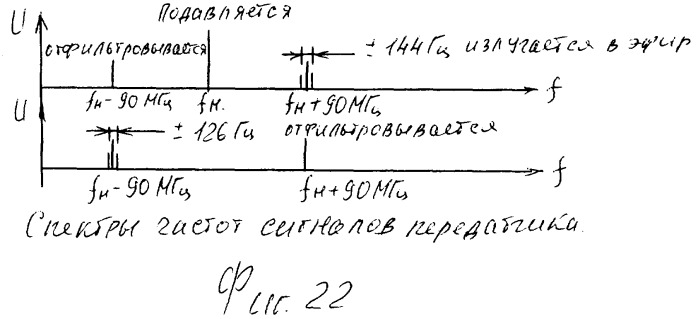 подавляется
U
отфильтровывается
± 144 Гц излучается в эфир
fн - 90 МГц fн. fн + 90 МГц f
U
± 126 Гц отфильтровывается
fн - 90 МГц fн + 90 МГц f
Спектры частот сигналов передатчика.
Фиг. 22